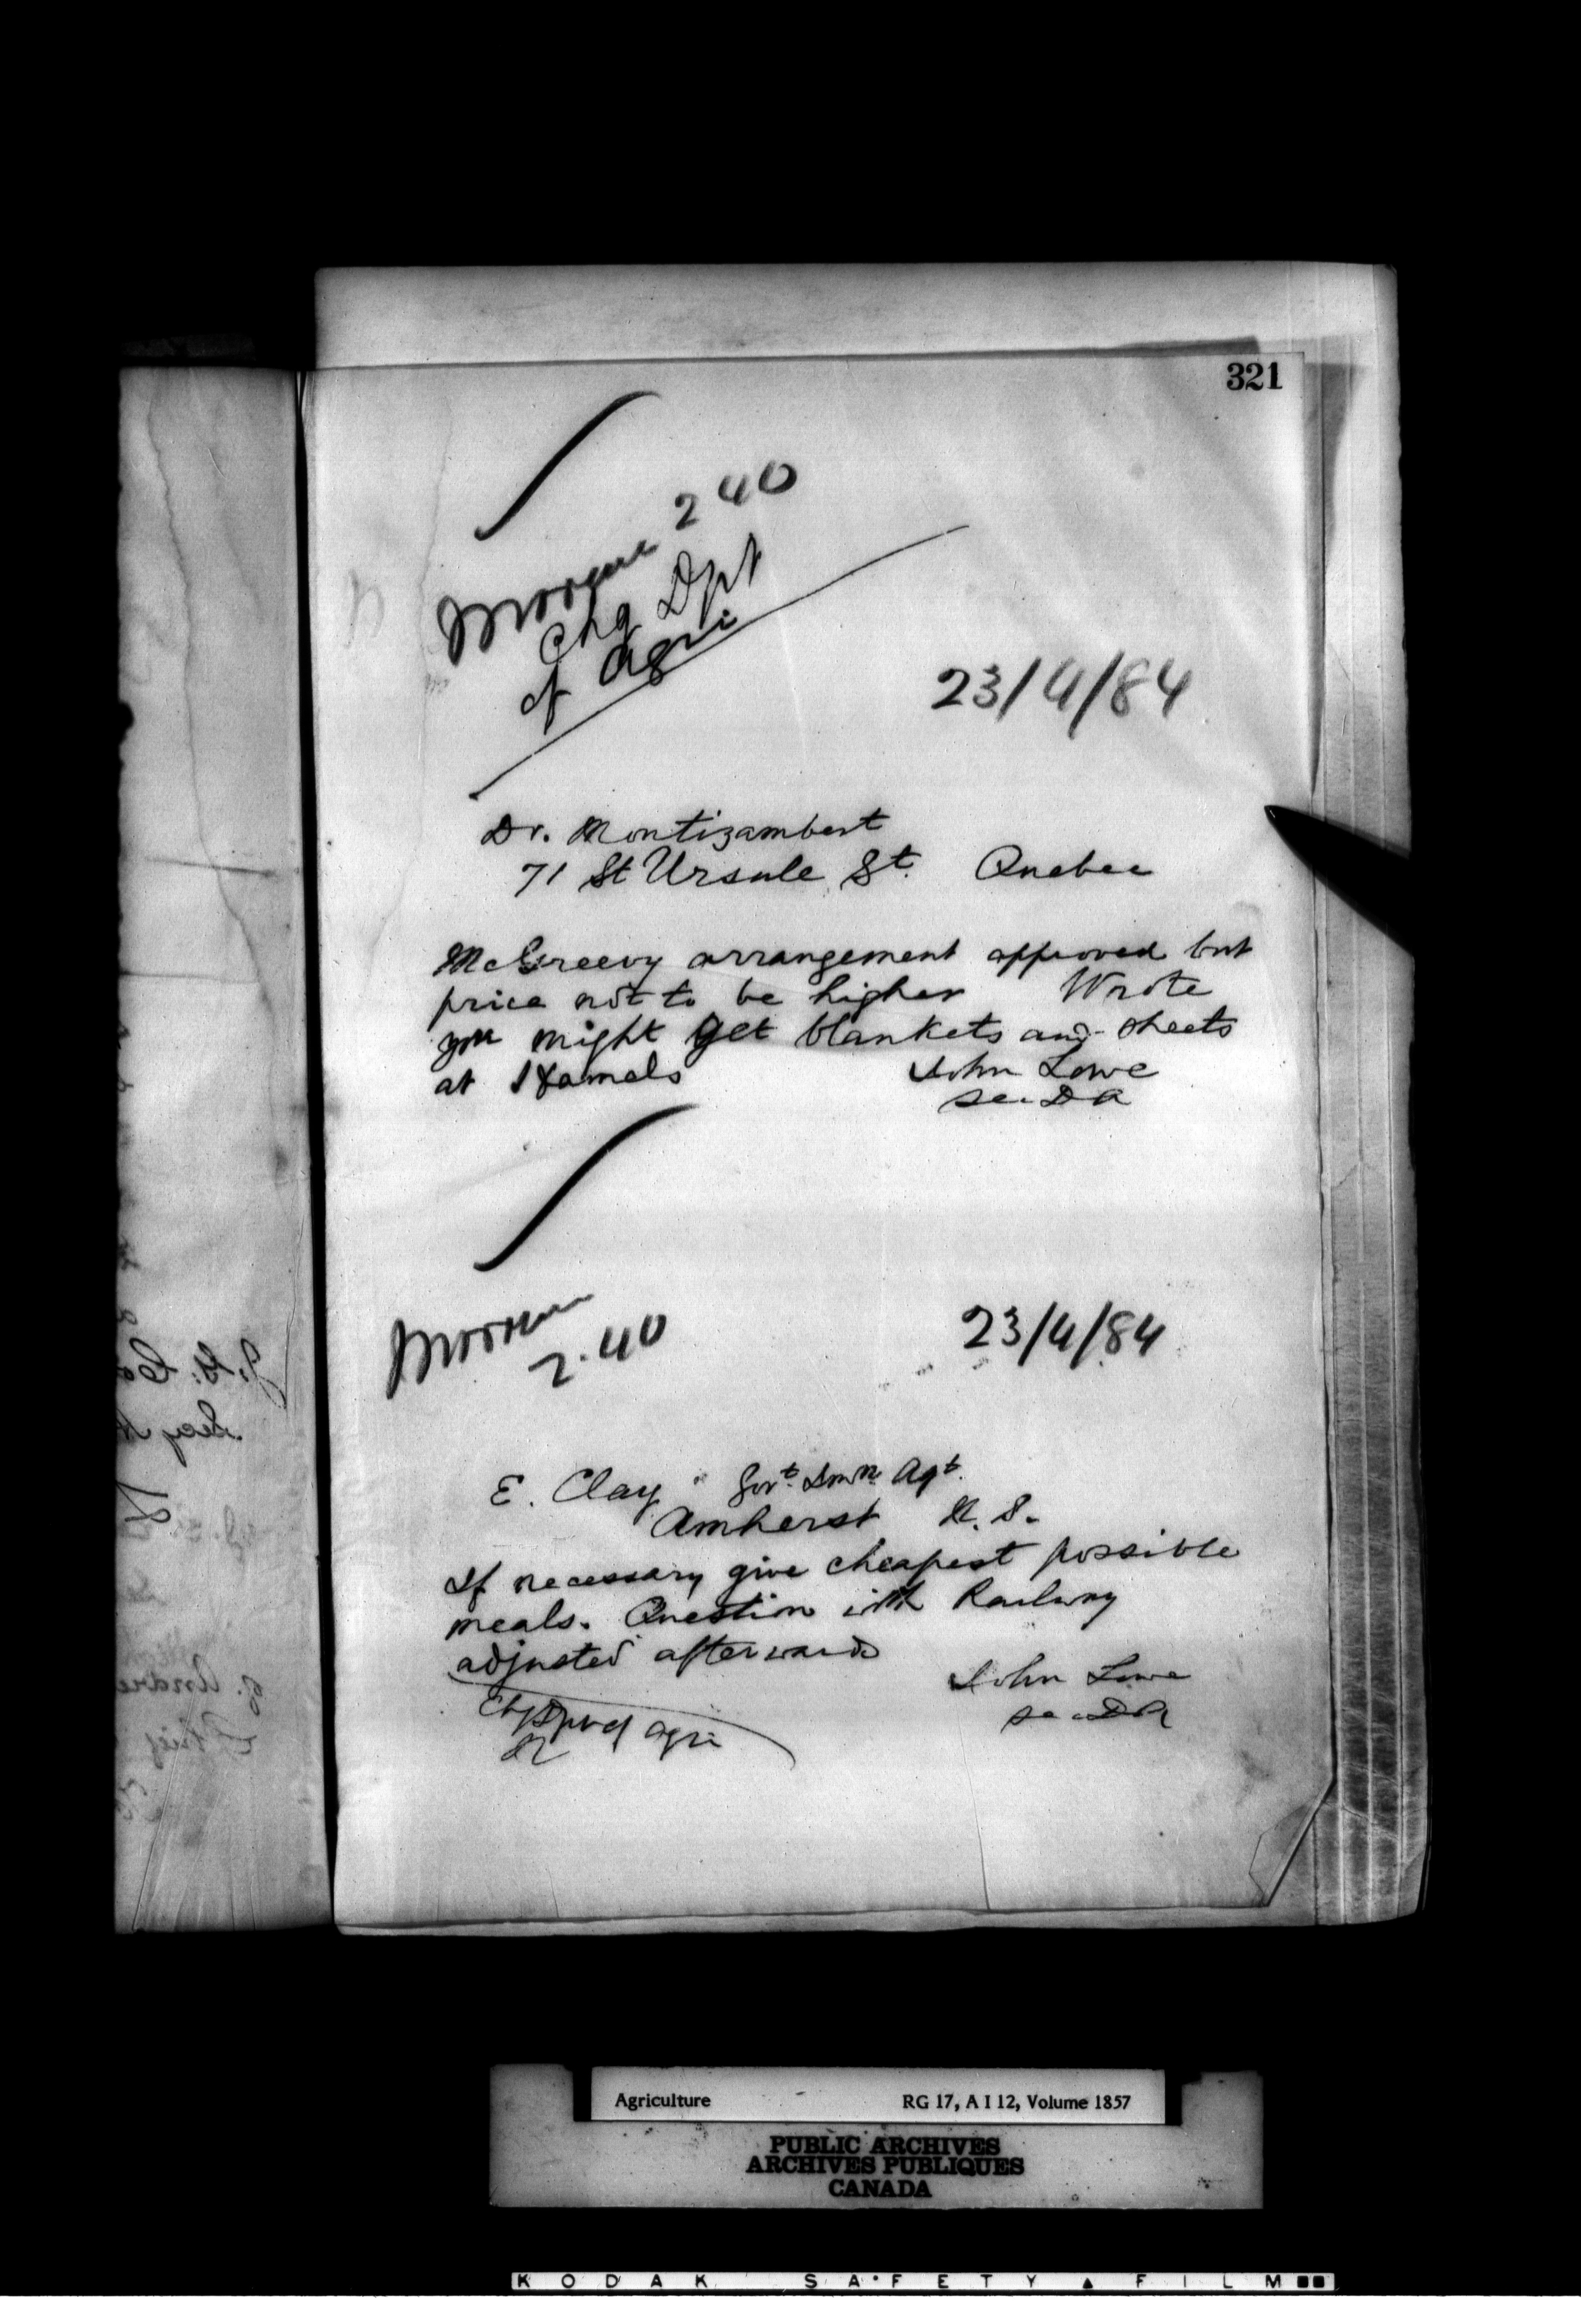 321
240
Chg Dpt
of Agri
23/4/84
Dr. Montizambert
71 St Ursule St. Quebec
McGreevy arrangement approved but
price not to be higher Wrote
you might get blankets and sheets
at
John Lowe
Sec D A
2.40
23/4/84
E. Clay Govt. Immn. Agt.
Amherst N. S.
If necessary give cheapest possible
meals. Question with Railway
adjusted afterwards
John Lowe
Sec D A
Chg Dpt of Agri
Agriculture RG 17, A I 12, Volume 1857
PUBLIC ARCHIVES
ARCHIVES PUBLIQUES
CANADA
KODAK SAFETY FILM